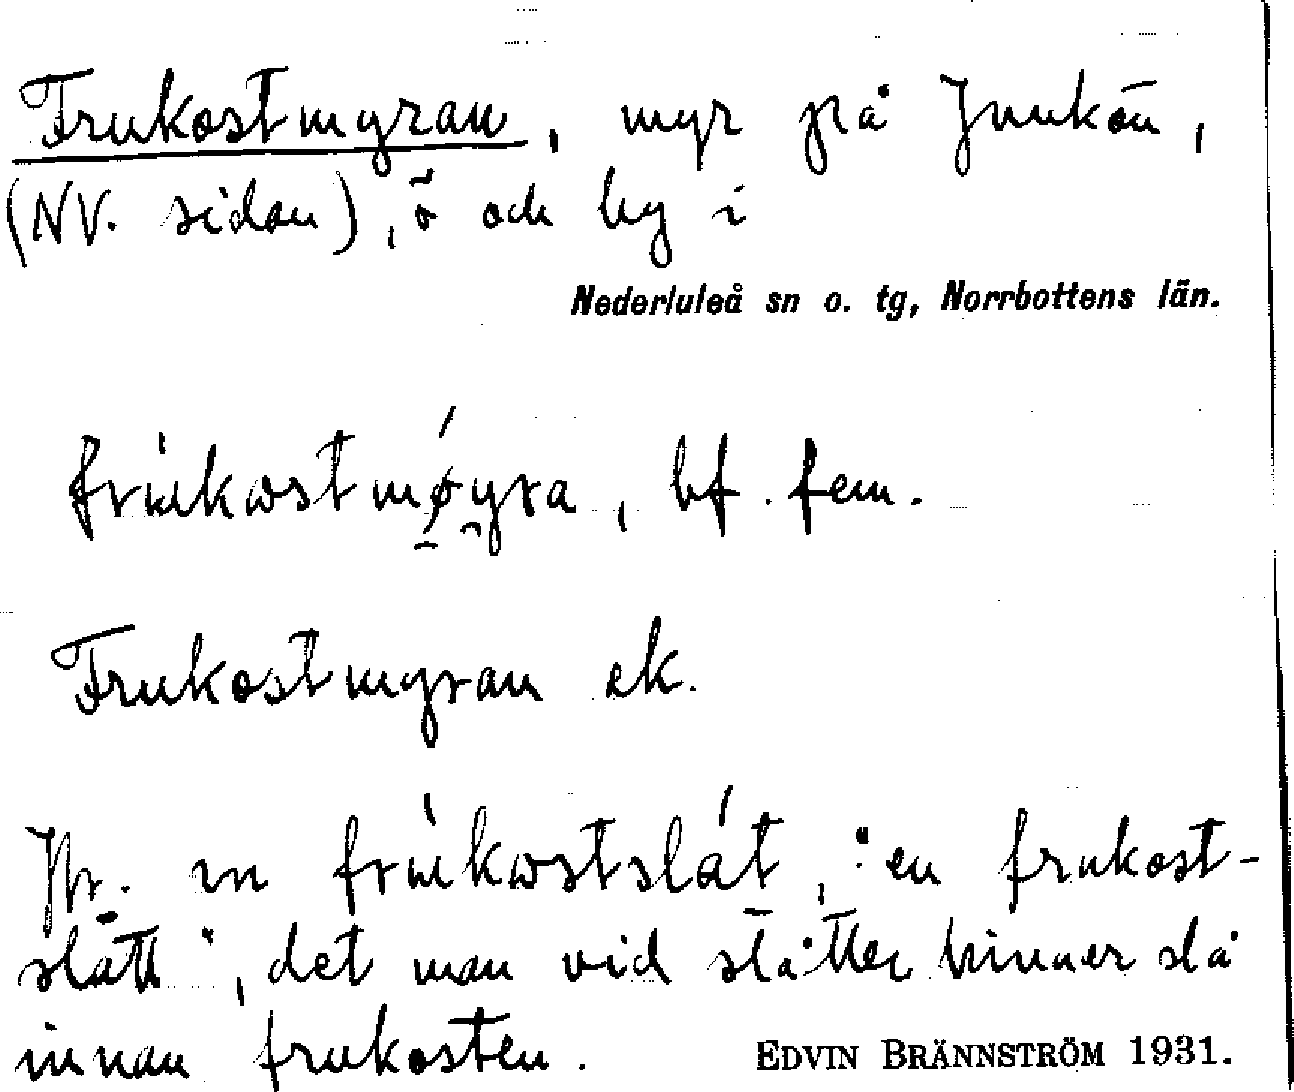 Frukostmyran, myr på Junkön,
(NV. sidan), ö och by i
Nederluleå sn o. tg, Norrbottens län.
frùkωstmǿyra, bf. fem.
Frukostmyran ek.
Jfr. en frùkωstslát, "en frukost-
slått", det man vid slåtter hinner slå
innan frukosten.
EDVIN BRÄNNSTRÖM 1931.